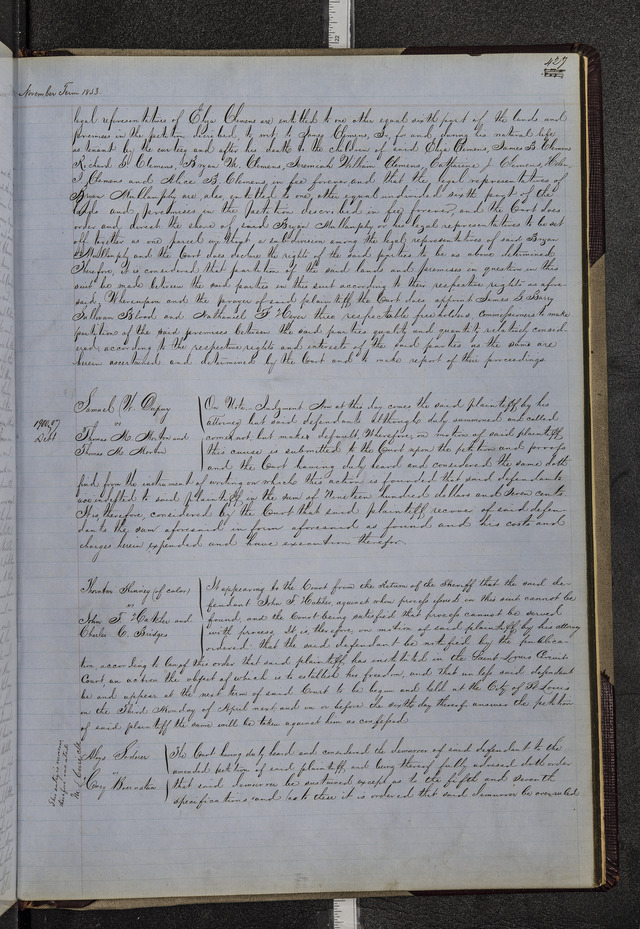 427
November Term 1853
legal representatives of Elza Clemens are entitled to one other equal sixth part of the lands and
premises in the petition described, to wit, to James Clemens, Sr, for and during his natural life
as tenant by the curtesy and after his death to the children of said Eliza Clemens, James B. Clemens
Richard G. Clemens, Bryan M. Clemens, Jeremiah William Clemens, Catherine J. Clemens, Helen
I. Clemens and Alice B. Clemens, in fee forever, and that the legal representatives of
Bryan Mullanphy are, also, entitled to one other equal undivided sixth part of the
lands and, premises in the petition described in fee, forever, and the Court does
order and direct the share of said Bryan Mullanphy or his legal representatives to be set
off together as one parcel without a subdivision among the legal representatives of said Bryan
Mullanphy and the Court does declare the rights of the said parties to be as above determined
Therefore, it is considered that partition of the said lands and premises in question in this
suit be made between the said parties in this suit according to their respective rights as afore-
said, Whereupon and the prayer of said plaintiffs the Court does appoint James G. Barry
Sullivan Blood and Nathaniel F. Heyer three respectable freeholders, commissioners to make
partition of the said premises between the said parties quality and quantity relatively consid-
ered, according to the respective rights and interests of the said parties as the same are
herein ascertained and determined by the Court and to make report of their proceedings
Samuel W. Dupuy
vs
Thomas M. Morton and
Thomas M. Morton
Debt
On Note. Judgment Now at this day comes the said plaintiff by his
attorney but said defendants although duly summoned and called
come not but makes default, Wherefore, on motion of said plaintiff,
this cause is submitted to the Court upon the petition and proofs
and the Court having duly heard and considered the same doth
find from the instrument of writing on which this action is founded that said defendants
are indebted to said plaintiff, in the sum of Nineteen hundred dollars and seven cents.
It is, therefore, considered by the Court that said plaintiff recover of said defen-
dants the sum aforesaid in form aforesaid as found and his costs and
charges herein expended and have execution therefor.
Thornton Kinney (of color)
vs
John F. Hatcher and
Charles C. Bridges
It appearing to the Court from the return of the Sheriff that the said de-
fendant John F. Hatcher, against whom process issued in this suit cannot be
found, and the Court being satisfied that process cannot be served
with process, It is, therefore, on motion of said plaintiff, by his attorney
ordered that the said defendant be notified by the publica-
tion according to law of this order that said plaintiff, has instituted in the Saint Louis Circuit
Court an action the object of which is to establish his freedom, and that unless said defendant
be and appear at the next term of said Court to be begun and held at the City of St Louis
on the Third Monday of April next and on or before the sixth day thereof answer the petition
of said plaintiff the same will be taken against him as confessed
Aloys
vs
The Court having duly heard and considered the demurrer of said defendant to the
amended petition of said plaintiff, and being thereof fully advised doth order
that said demurrer be sustained except as to the fifth and seventh
specifications, and as to these it is ordered that said demurrer be overruled